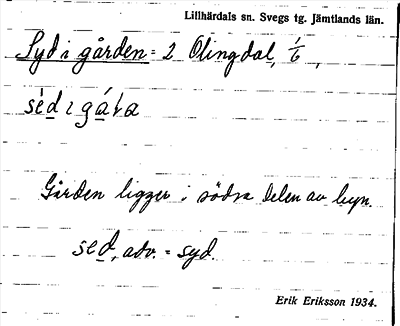 Lillhärdals sn. Svegs tg. Jämtlands län.
Syd i gården = 2 Olingdal, 1/6,
Gården ligger i södra delen av byn.
sed, adv. = syd.
Erik Eriksson 1934.